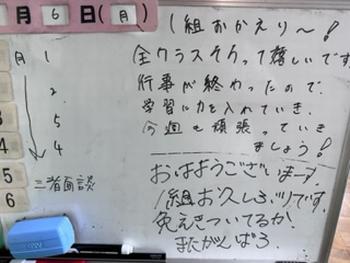 月 6 日 (月)
1組おかえり〜!
全クラスそろって嬉しいです
行事が終わったので、
学習に力を入れていき、
今週も頑張っていき
ましょう!
おはようございまーす。
1組お久しぶりです。
免えきついてるか、
またがんばろう。
月 1
2
5
4
三者面談
3
4
5
6